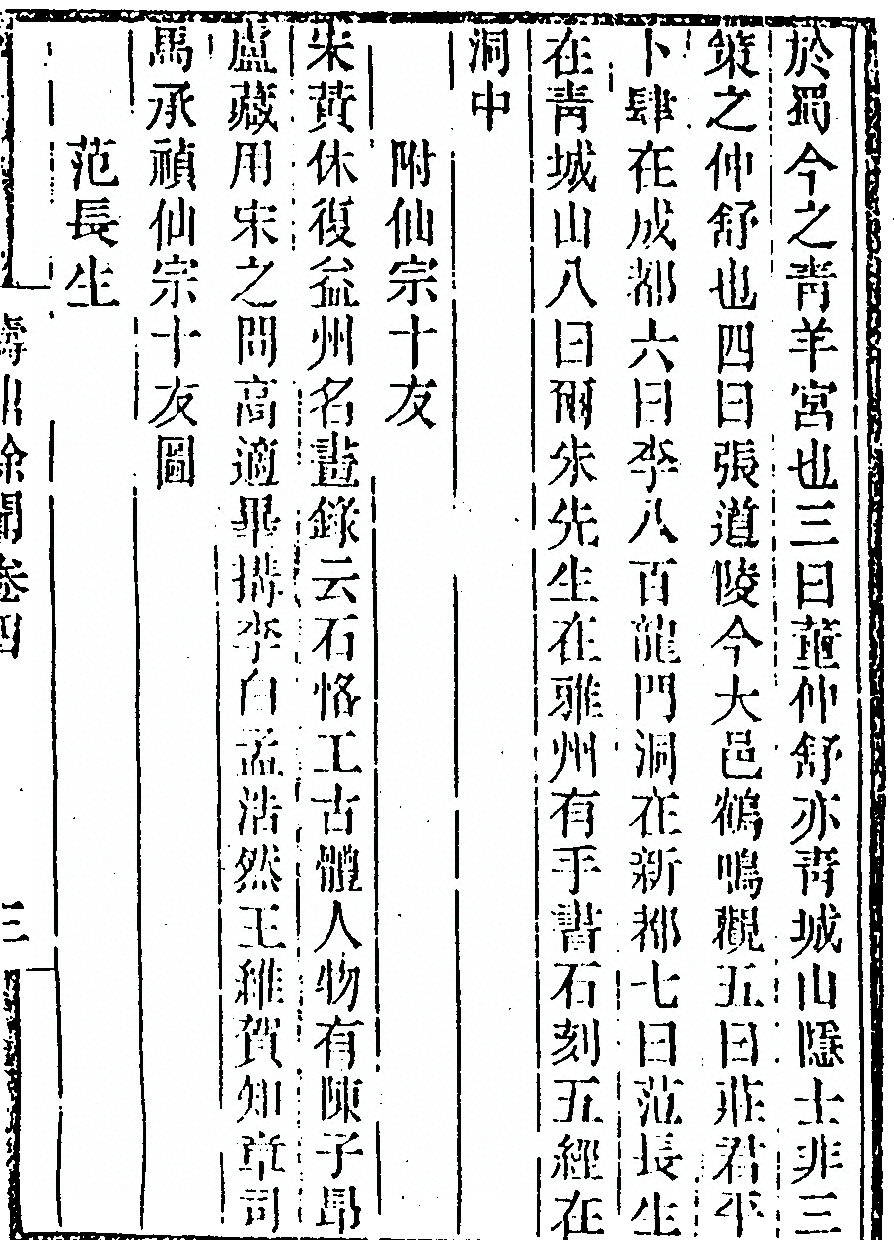 於蜀今之青羊宮也三曰董仲舒亦青城山隱士非三
策之仲舒也四曰張道陵今大邑鶴鳴觀五曰莊君平
卜肆在成都六曰李八百龍門洞在新都七曰范長生
在青城山八曰爾朱先生在雅州有手書石刻五經在
洞中
附仙宗十友
宋黃休復益州名畫錄云石恪工古體人物有陳子昂
盧藏用宋之問高適畢搆李白孟浩然王維賀知章司
馬承禎仙宗十友圖
范長生
餘聞卷四
三